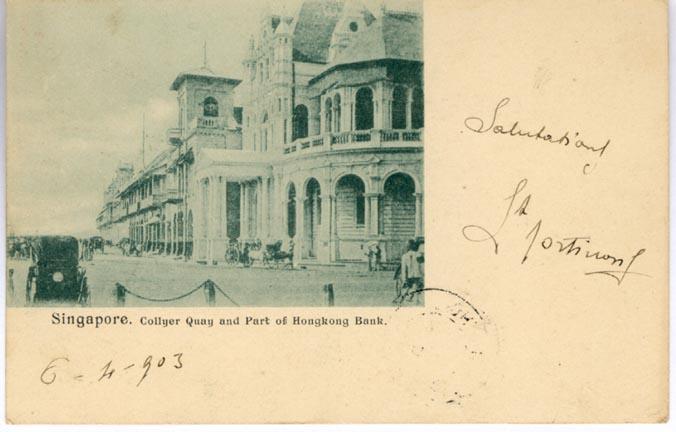 Salutations
Singapore. Collyer Quay and Part of Hongkong Bank.
6-4-903